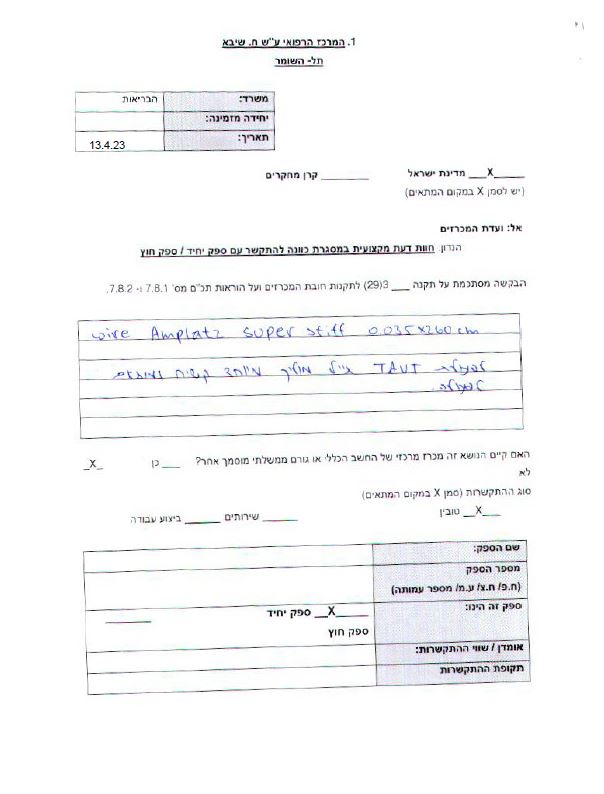 1. המרכז הרפואי ע"ש ח. שיבא
תל- השומר
משרד: הבריאות
יחידה מזמינה:
תאריך: 13.4.23
___X__ מדינת ישראל ________ קרן מחקרים
(יש לסמן X במקום המתאים)
אל: ועדת המכרזים
הנדון. חוות דעת מקצועית במסגרת כוונה להתקשר עם ספק יחיד / ספק חוץ
הבקשה מסתכמת על תקנה ___ 3(29) לתקנות חובת המכרזים ועל הוראות תכ"ם מס' 7.8.1 ו- 7.8.2.
wire Amplatz super stiff 0.035x260cm
לפעולת TAVI גייל מוליך מיוחד קשיח
לפעולה
האם קיים הנושא זה מכרז מרכזי של החשב הכללי או גורם ממשלתי מוסמך אחר? ___ כן _X_
לא
סוג ההתקשרות (סמן X במקום המתאים)
___X__ טובין ______ שירותים ______ ביצוע עבודה
שם הספק:
מספר הספק
(ח.פ/ ח.צ/ ע.מ/ מספר עמותה)
ספק זה הינו: ____X__ ספק יחיד ________
ספק חוץ
אומדן / שווי ההתקשרות:
תקופת ההתקשרות